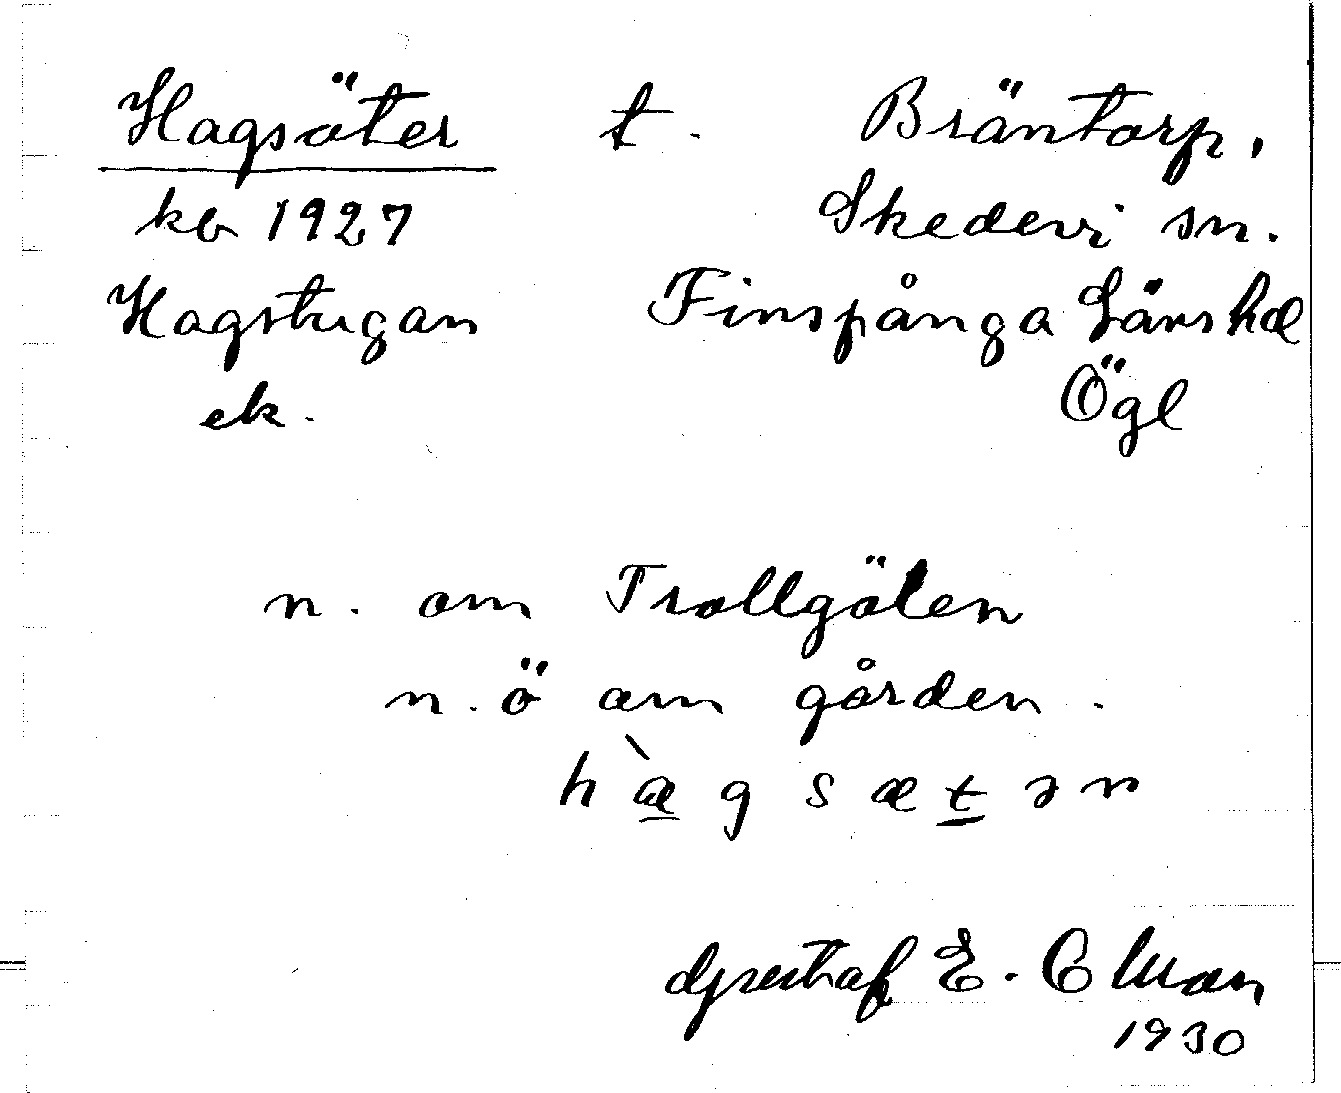 Hagsäter t. Bräntorp,
kb 1927 Skedevi sn.
Hagstugan Finspånga Läns hd
ek. Ögl
n. om Trollgölen
n.ö om gården.
hàgsætər
Gustaf E. Ekman
1930